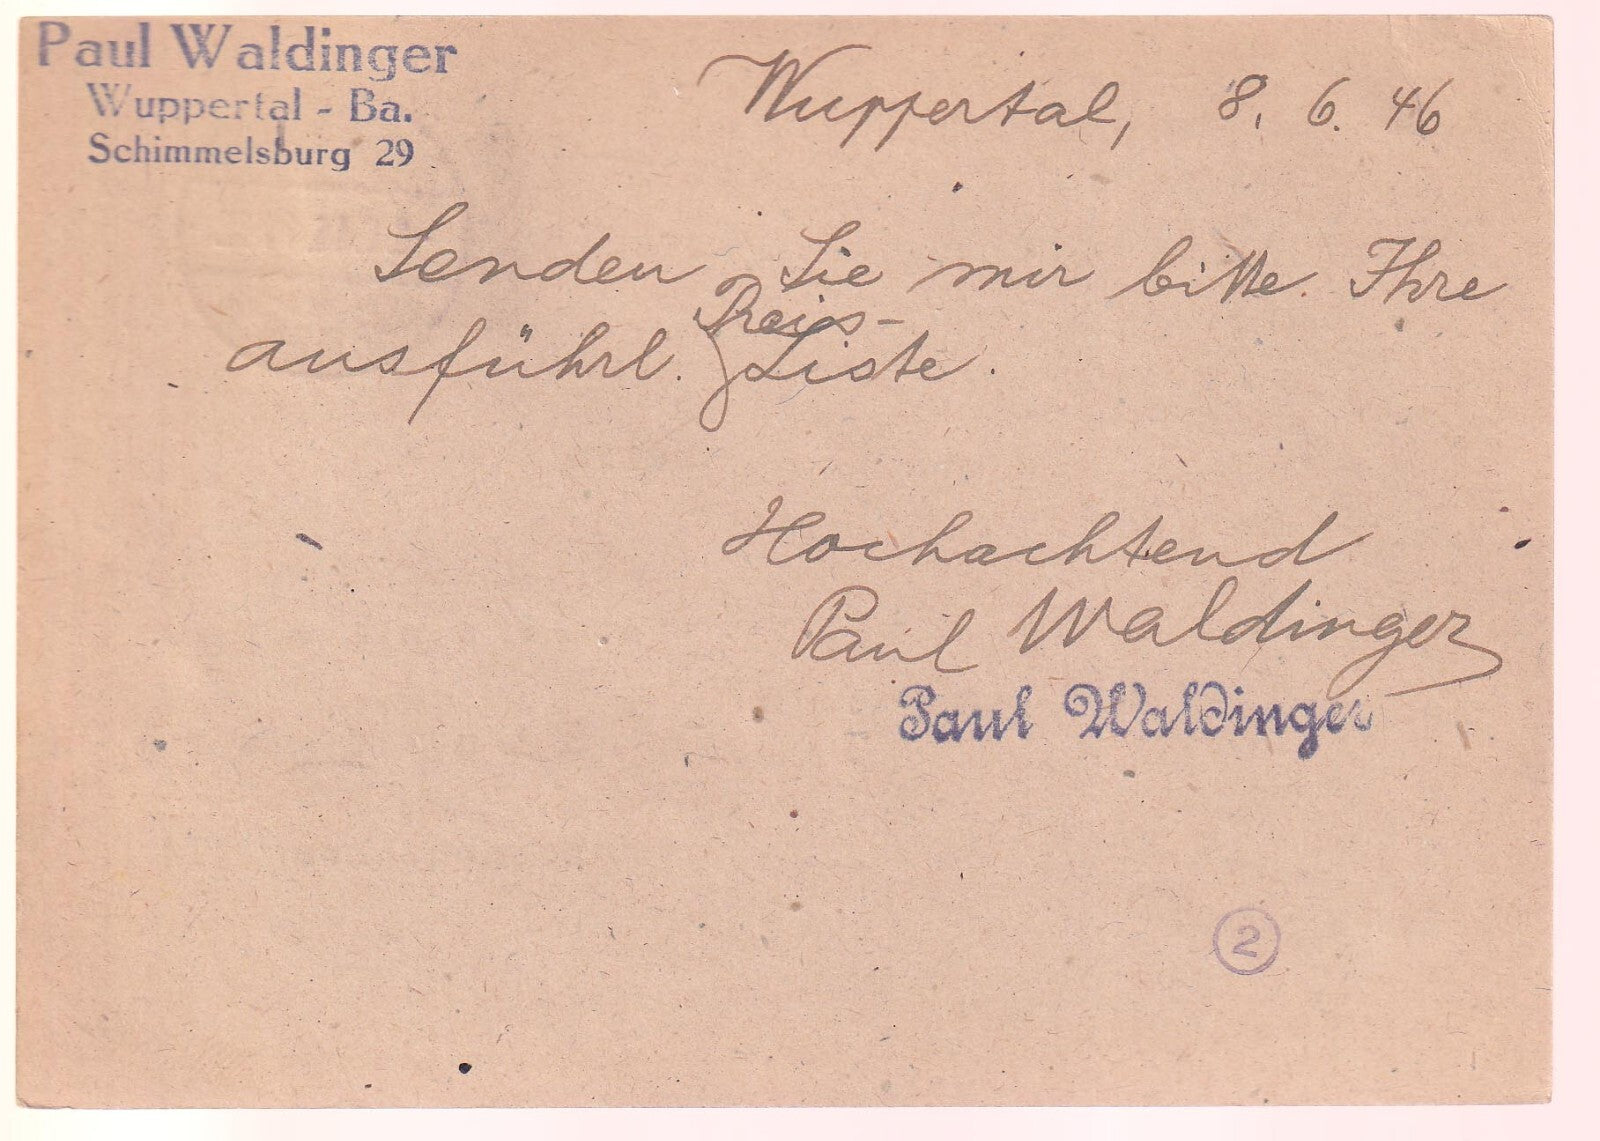 Paul Waldinger
Wuppertal - Ba.
Schimmelsburg 29
Wuppertal, 8. 6. 46
Senden Sie mir bitte Ihre
Preis-
ausführl. Liste.
Hochachtend
Paul Waldinger
Paul Waldinger
2